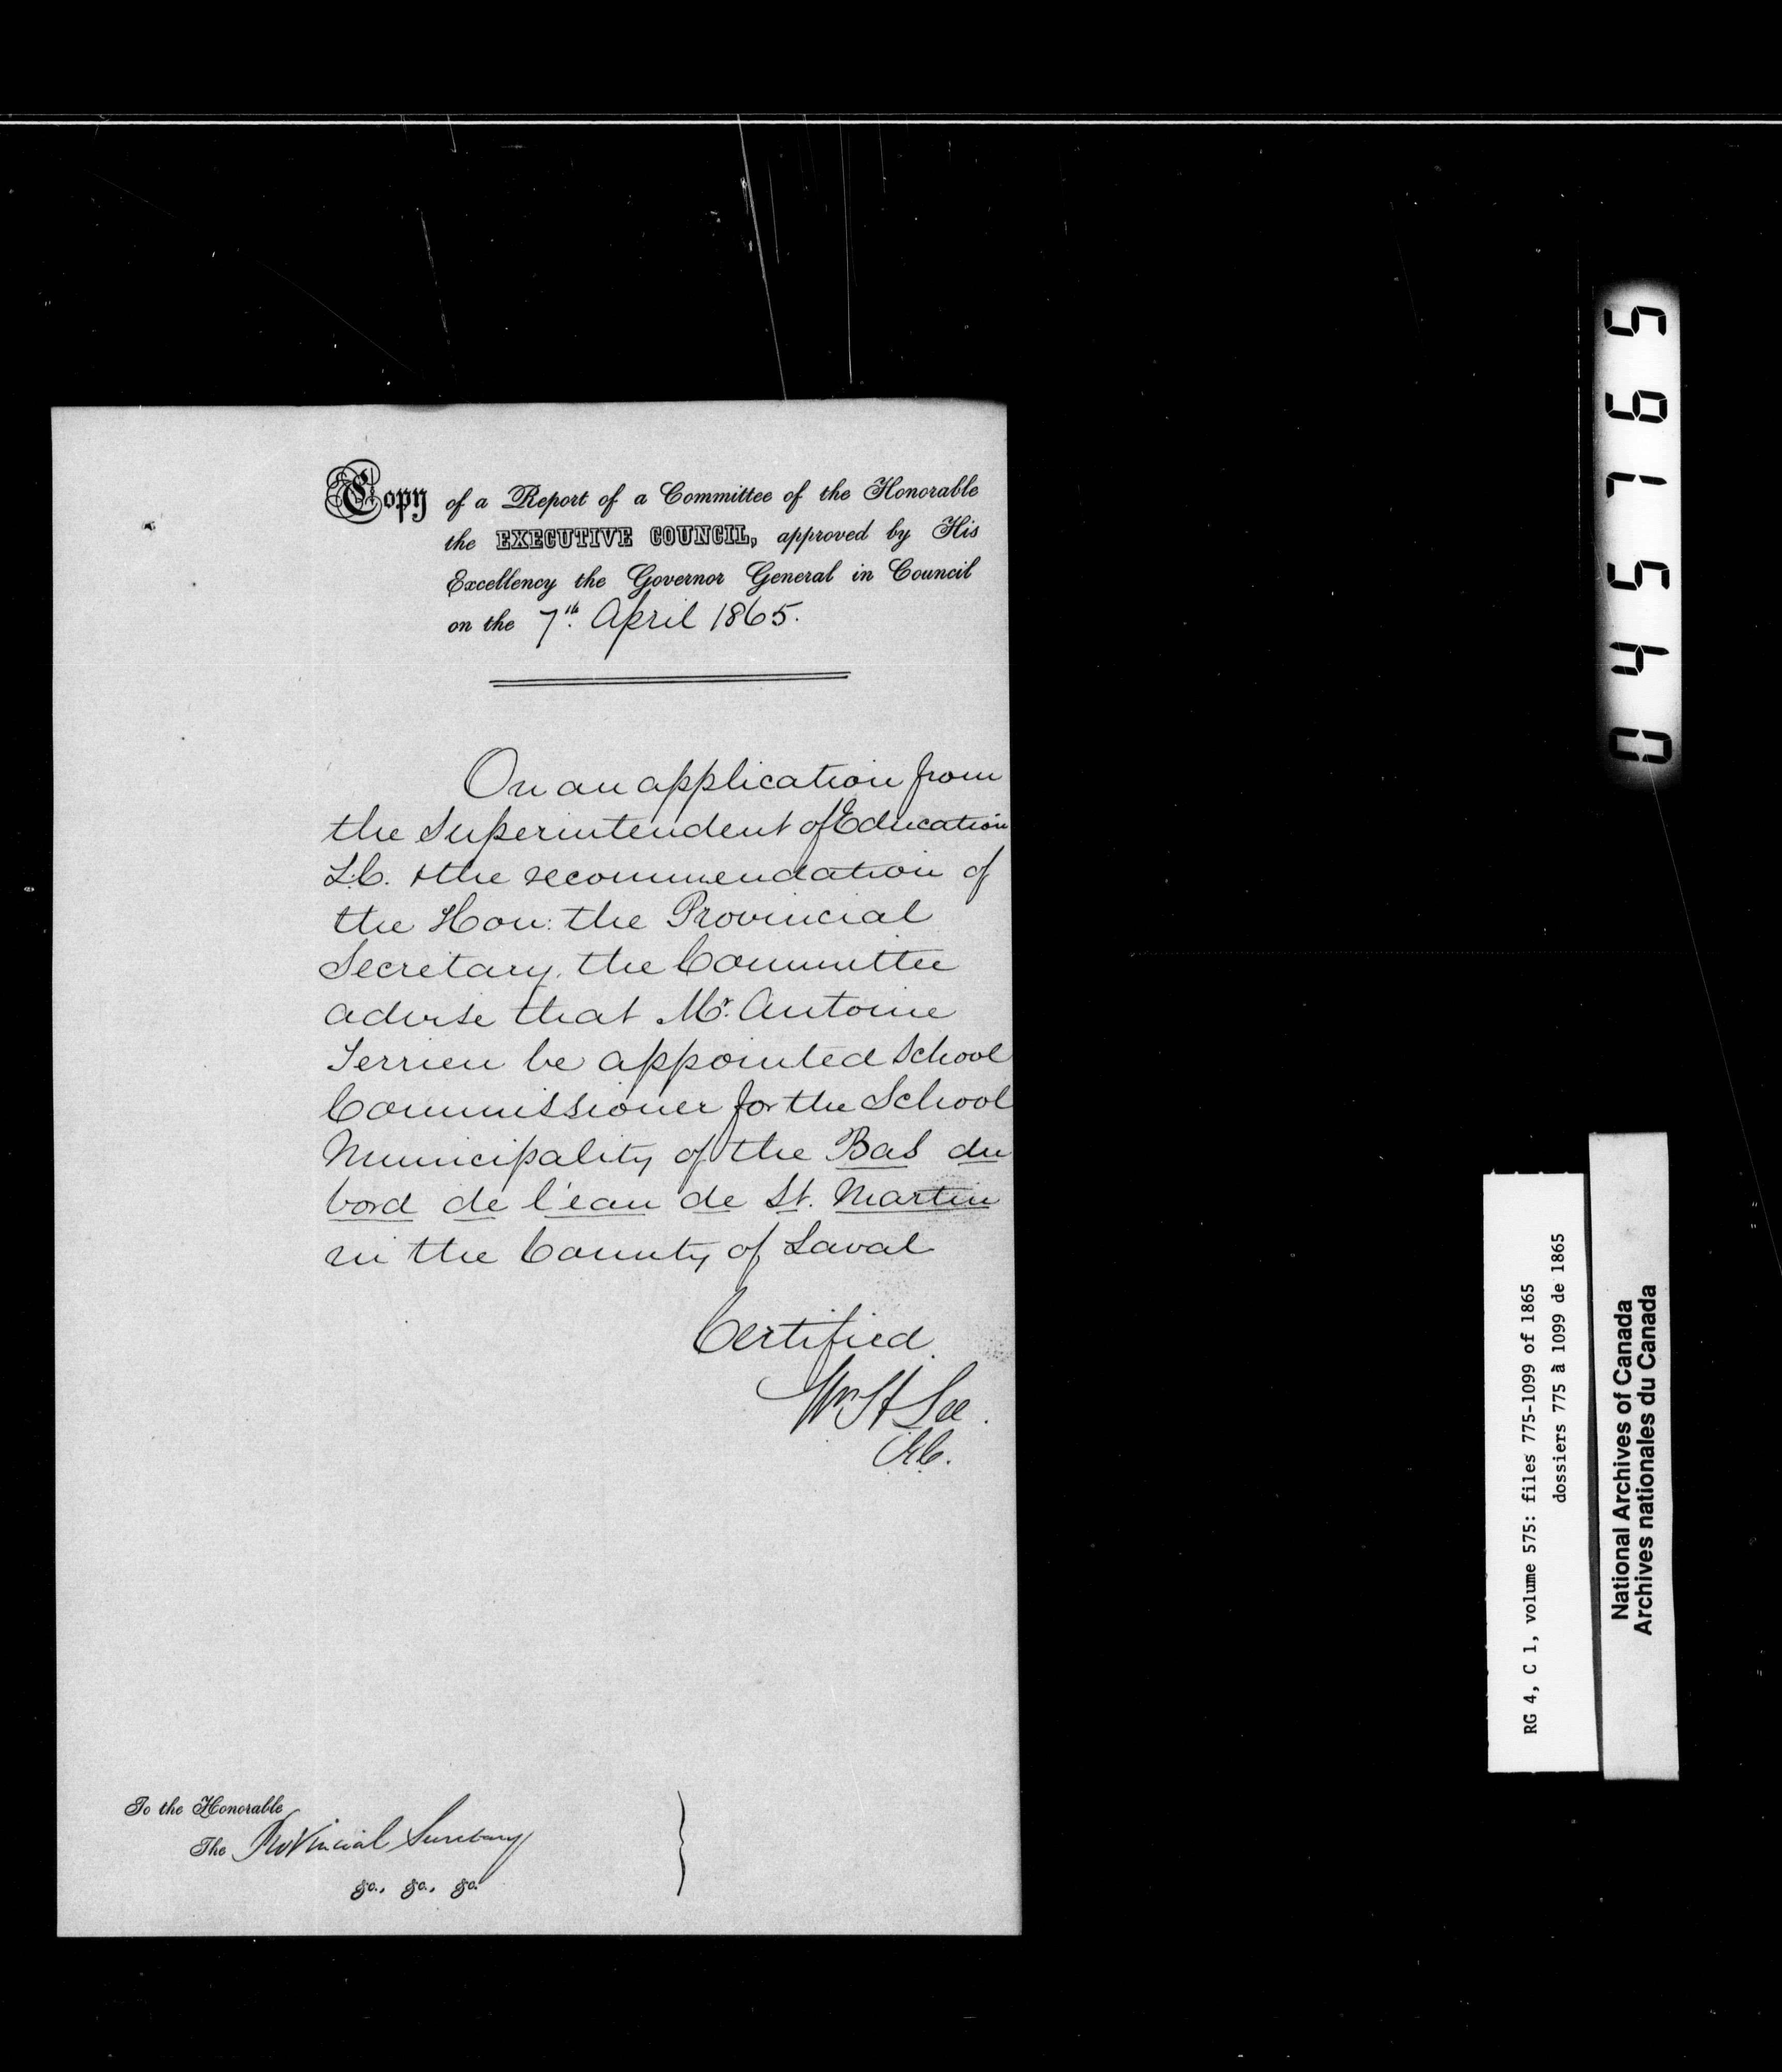 Copy of a Report of a Committee of the Honorable
the EXECUTIVE COUNCIL, approved by His
Excellency the Governor General in Council
on the 7th. April 1865.
On an application from
the Superintendent of Education
L.C. & the recommendation of
the Hon: the Provincial
Secretary, the Committee
advise that Mr. Antoine
Terrien be appointed School
Commissioner for the School
Municipality of the Bas du
bord de l'eau de St. Martin
in the County of Laval
Certified.
Wm H Lee.
C.E.C.
To the Honorable
The Provincial Secretary
&c., &c., &c.
045195
RG 4, C 1, volume 575: files 775-1099 of 1865
dossiers 775 à 1099 de 1865
National Archives of Canada
Archives nationales du Canada